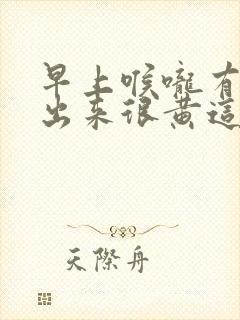 早上喉嚨有
出來很黃這
天際舟